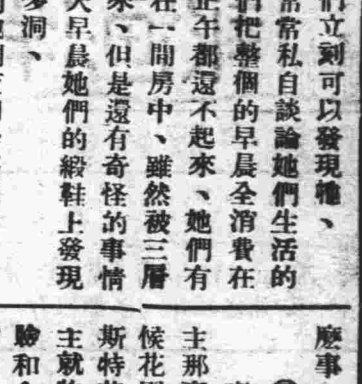 們立刻可以發現牠、
常常私自談論她們生活的
們把整個的早晨全消費在
正午都還不起來、她們有
在一間房中、雖然被三層
來、但是還有奇怪的事情
天早晨她們的緞鞋上發現
多洞、
麼事
主那
候花
斯特
主就
臉和